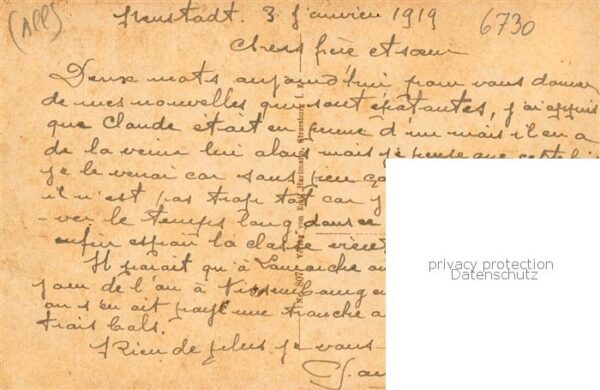 (APP)
Neustadt. 3 Janvier 1919
6730
Chers frère et sœur
Deux mots aujourd'hui pour vous donner
de mes nouvelles qui sont épatantes, j'ai appris
que Claude était en perme d'un mois il en a
de la veine lui alors mais je pense que cette
je le verrai car sans peu
il n'est pas trop tôt car
-ver le temps long dans ce
enfin espoir la classe vient
Il paraît qu'à Lamarche
jour de l'an à
on s'en ait payé une tranche
trois bals.
Rien de plus je vous
No. 807. Verlag von Emil Hartmann, Strassburg i. E.
privacy protection
Datenschutz